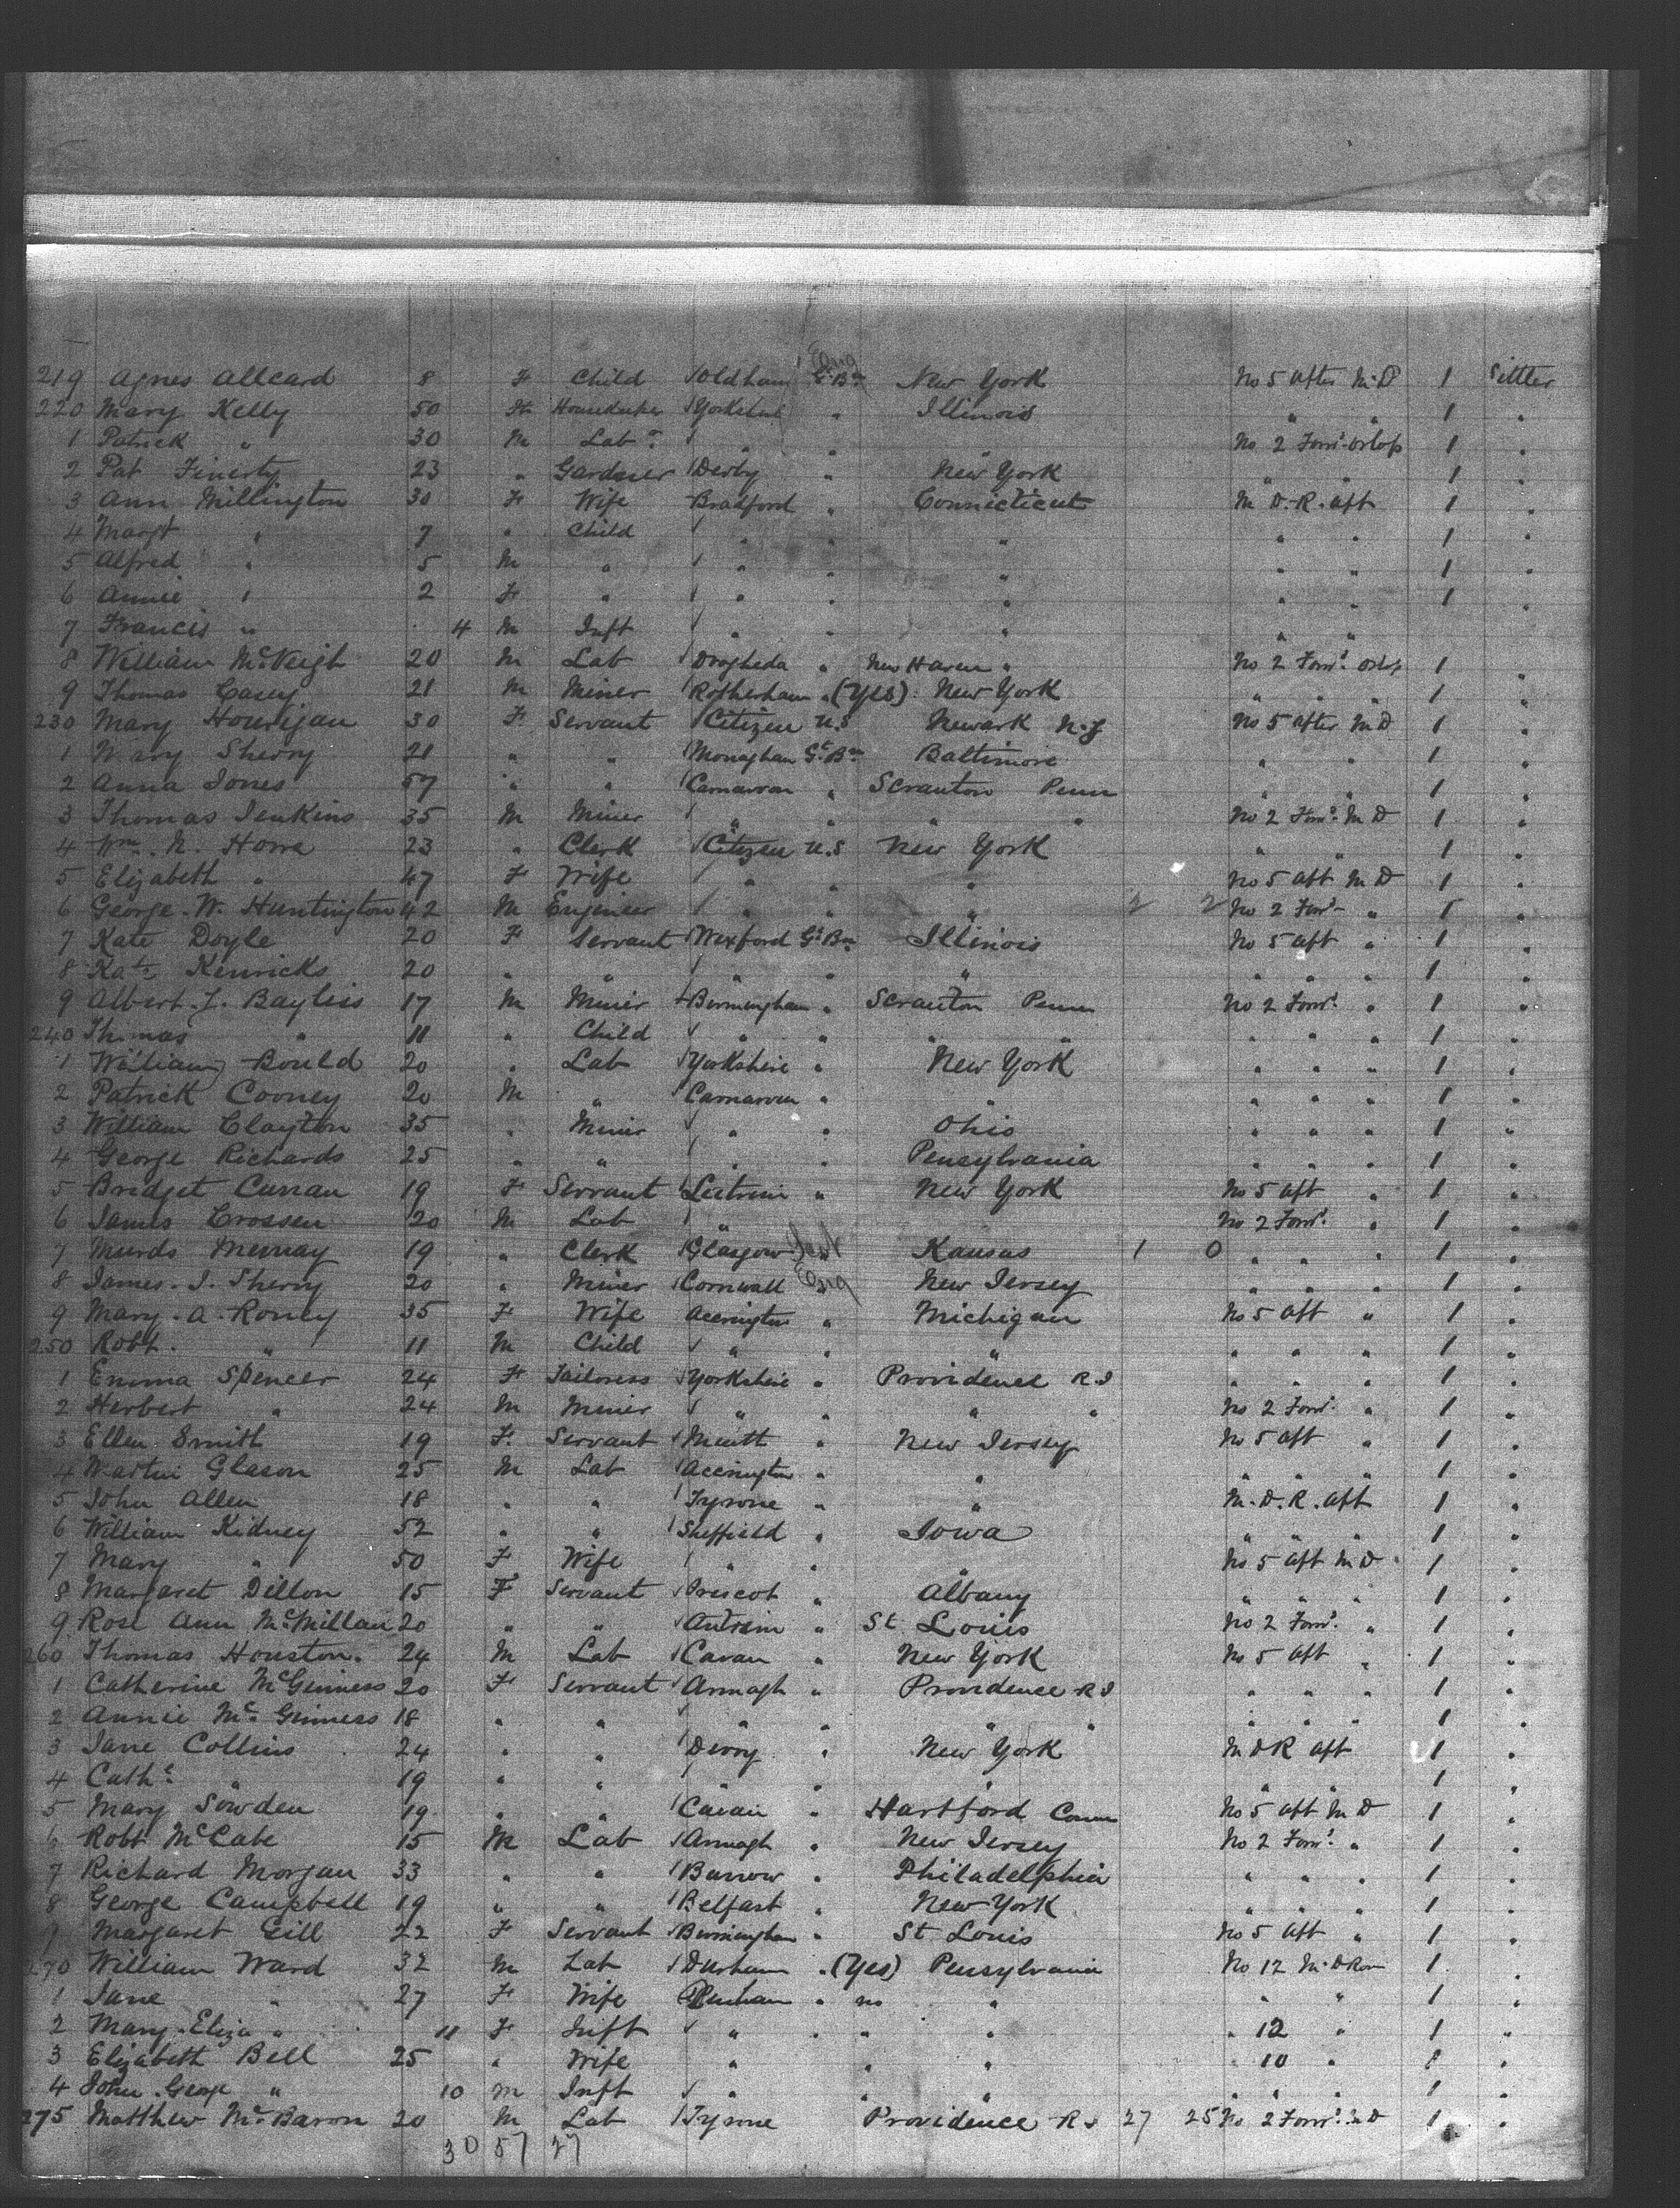 Eng
219 Agnes Allcard 8 F Child Oldham Gt. Bn New York No 5 after M.D 1 Settler
220 Mary Kelly 50 F Housekeeper Yorkshire " Illinois " " 1 "
1 Patrick " 30 M Labr " " " No 2 Forwd. Orlop 1 "
2 Pat Finerty 23 " Gardner Derby " New York " " 1 "
3 Ann Millington 30 F Wife Bradford " Connecticut M D.R. aft 1 "
4 Margt " 7 " Child " " " " " 1 "
5 Alfred " 5 M " " " " " " 1 "
6 Annie " 2 F " " " " " " 1 "
7 Francis " 4 M Inft " " " " " "
8 William McVeigh 20 M Lab Drogheda " New Haven " No 2 Forwd. Orlop 1 "
9 Thomas Casey 21 M Miner Rotherham " (Yes) New York " " 1 "
230 Mary Hourigan 30 F Servant Citizen U.S Newark N.J No 5 after M D 1 "
1 Mary Sherry 21 " " Monaghan Gt. Bn Baltimore " " 1 "
2 Anna Jones 57 " " Carnarvon " Scranton Penn " " 1 "
3 Thomas Jenkins 35 M Miner " " " " No 2 Forwd. M D 1 "
4 Wm. N. Horre 23 " Clerk Citizen U.S New York " " 1 "
5 Elizabeth " 47 F Wife " " " No 5 aft M D 1 "
6 George. W. Huntington 42 M Engineer " " " 2 2 No 2 Forwd " 1 "
7 Kate Doyle 20 F Servant Wexford Gt. Bn Illinois No 5 aft " 1 "
8 Kate Kenricks 20 " " " " " " " " 1 "
9 Albert. J. Bayliss 17 M Miner Birmingham " Scranton Penn No 2 Forwd. " 1 "
240 Thomas " 11 " Child " " " " " " " 1 "
1 William Bould 20 " Lab Yorkshire " New York " " " 1 "
2 Patrick Cooney 20 M " Carnarvon " " " " " 1 "
3 William Clayton 35 " Miner " " Ohio " " " 1 "
4 George Richards 25 " " " " Pensylvania " " " 1 "
5 Bridget Curran 19 F Servant Leitrim " New York No 5 aft " 1 "
6 James Crossen 20 M Lab " " No 2 Forwd. " 1 "
7 Murdo Murray 19 " Clerk Glasgow " Kansas 1 0 " " " 1 "
8 James. J. Sherry 20 " Miner Cornwall Eng New Jersey " " " 1 "
9 Mary. A. Roney 35 F Wife Accrington " Michigan No 5 aft " 1 "
250 Robt. " 11 M Child " " " " " " 1 "
1 Emma Spencer 24 F Tailoress Yorkshire " Providence R.I " " " 1 "
2 Herbert " 24 M Miner " " " " No 2 Forwd. " 1 "
3 Ellen Smith 19 F. Servant Meath " New Jersey No 5 aft " 1 "
4 Martin Glason 25 M Lab Accrington " " " " " 1 "
5 John Allen 18 " " Tyrone " " M.D.R. aft 1 "
6 William Kidney 52 " " Sheffield " Iowa " " " 1 "
7 Mary " 50 F Wife " " No 5 aft M D 1 "
8 Margaret Dillon 15 F Servant Prescot " Albany " " " 1 "
9 Rose Ann McMillan 20 " " Antrim " St Louis No 2 Forwd. " 1 "
260 Thomas Houston. 24 M Lab Cavan " New York No 5 aft " 1 "
1 Catherine McGinness 20 F Servant Armagh " Providence R I " " " 1 "
2 Annie Mc. Ginness 18 " " " " " " " " " 1 "
3 Jane Collins 24 " " Derry " New York M D R aft 1 "
4 Cathe " 19 " " " " " " " 1 "
5 Mary Sowden 19 " " Cavan " Hartford Conn No 5 aft M D 1 "
6 Robt McCabe 15 M Lab Armagh " New Jersey No 2 Forwd. " 1 "
7 Richard Morgan 33 " " Barrow " Philadelphia " " " 1 "
8 George Campbell 19 " " Belfast " New York " " " 1 "
9 Margaret Gill 22 F Servant Birmingham " St Louis No 5 aft " 1 "
270 William Ward 32 M Lab Durham " (Yes) Pensylvania No 12 M.D Rom 1 "
1 Jane " 27 F Wife Durham " no " " " 1 "
2 Mary Eliza " 11 F Inft " " " " " 12 " 1 "
3 Elizabeth Bell 25 " Wife " " " " 10 " 1 "
4 John George " 10 m Inft " " " " " " 1 "
275 Matthew McBaron 20 M Lab Tyrone Providence R I 27 25 No 2 Forwd. M D 1 "
30 57 27